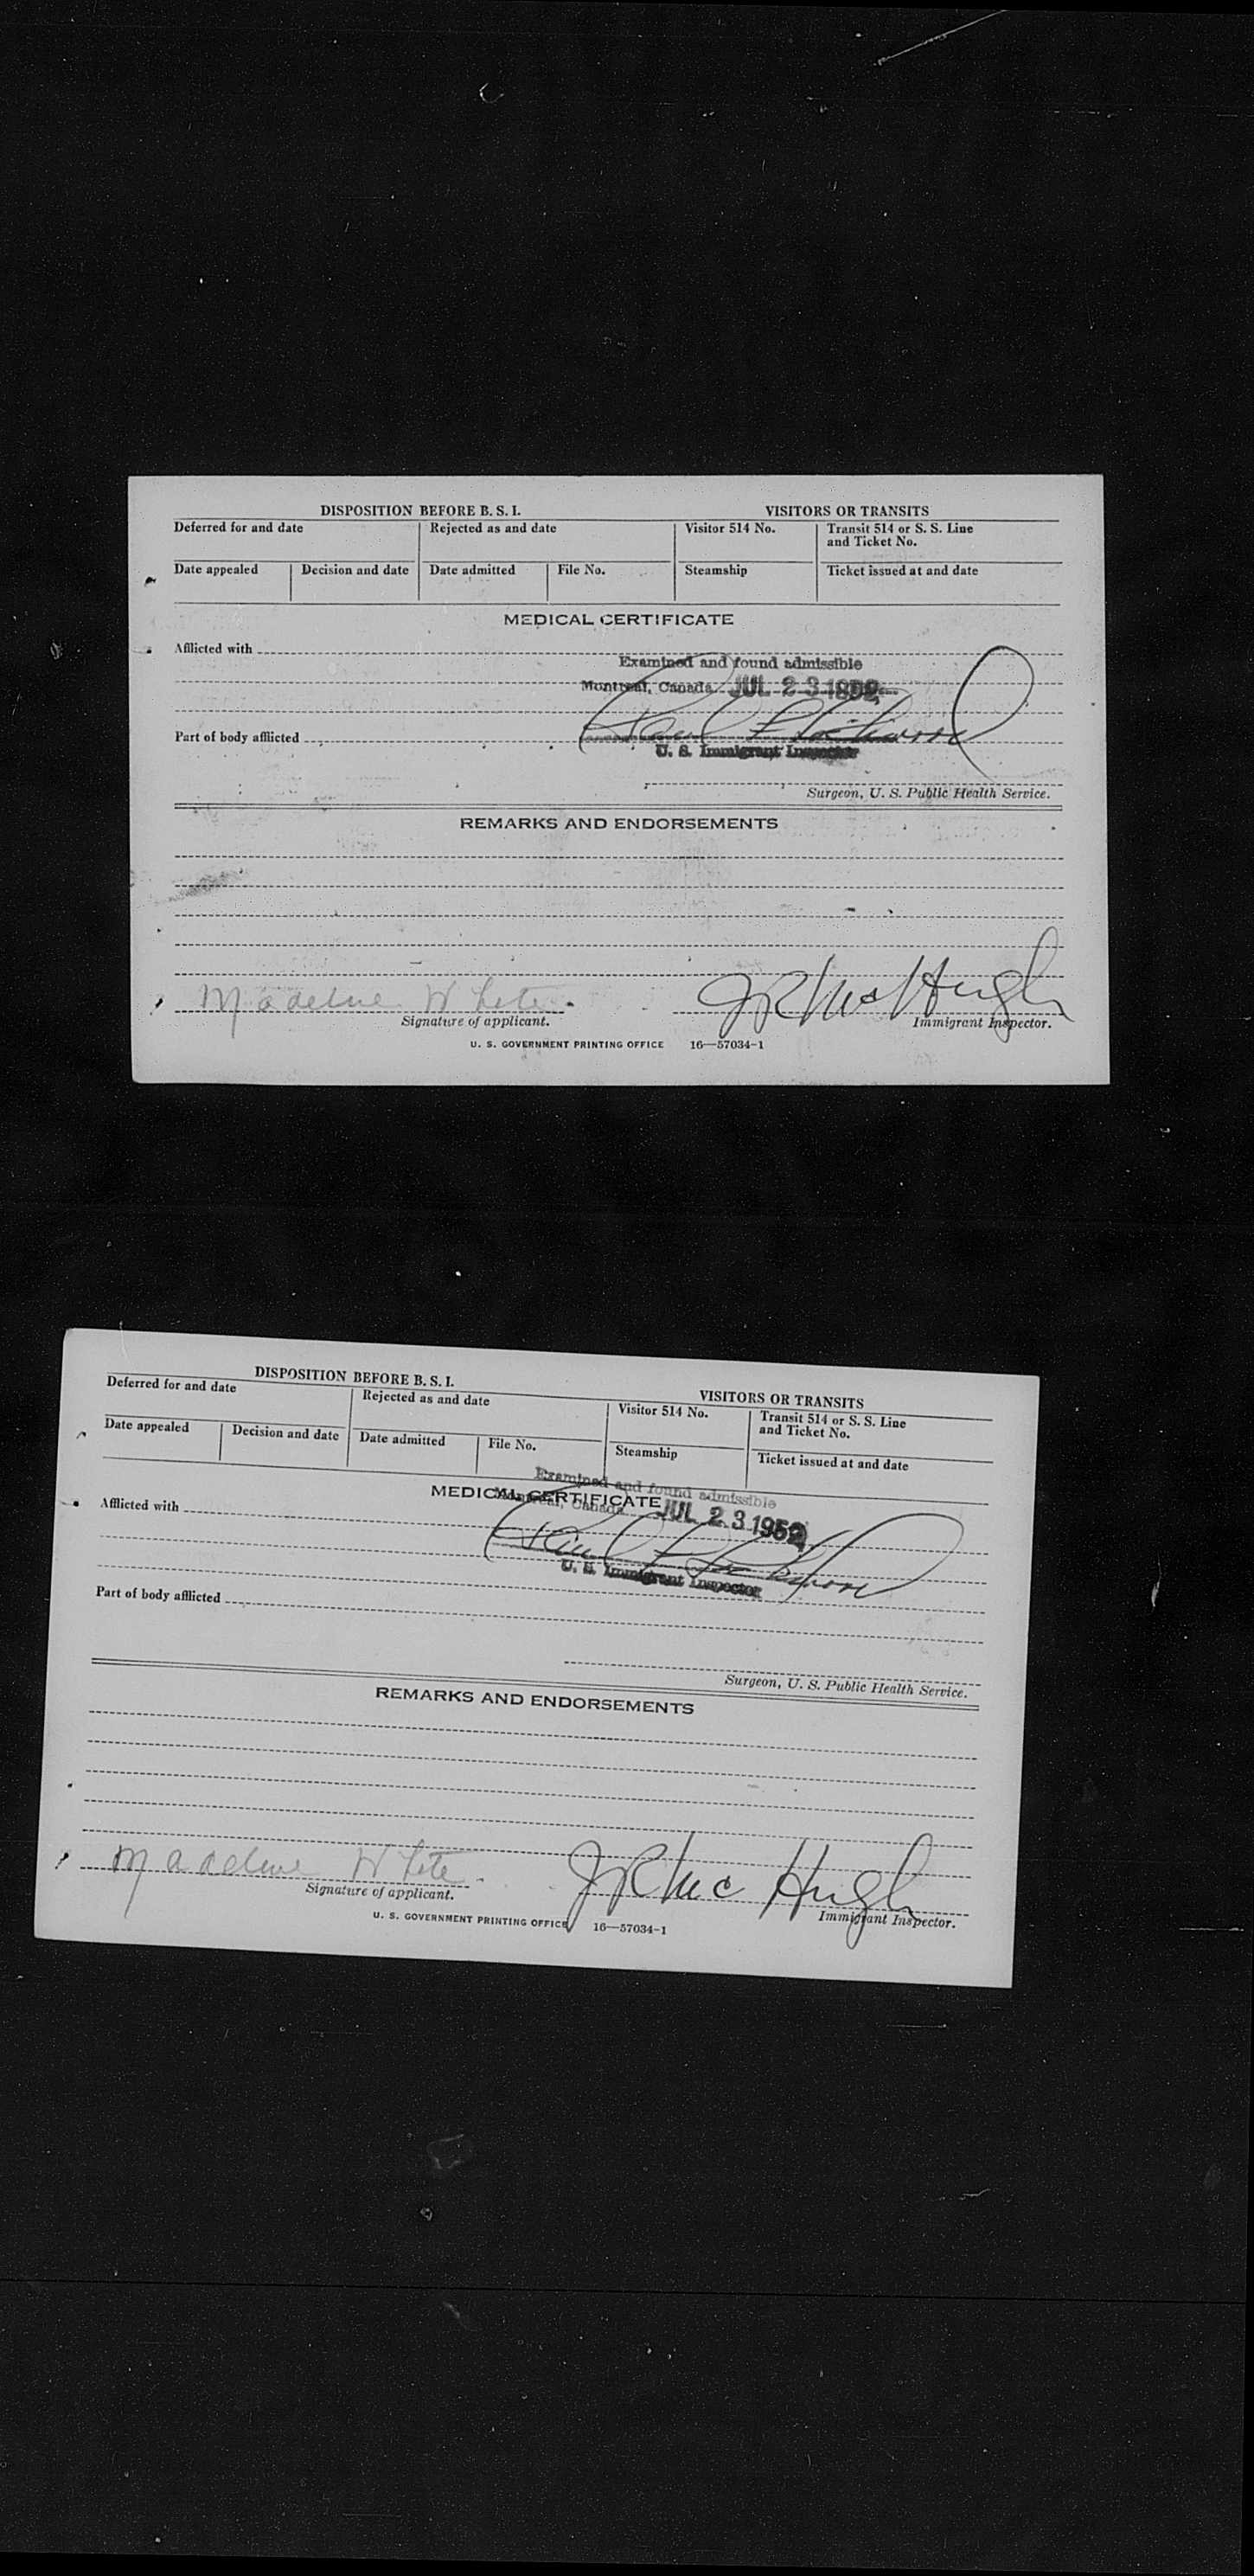 DISPOSITION BEFORE B. S. I. VISITORS OR TRANSITS
Deferred for and date Rejected as and date Visitor 514 No. Transit 514 or S. S. Line
and Ticket No.
Date appealed Decision and date Date admitted File No. Steamship Ticket issued at and date
MEDICAL CERTIFICATE
Afflicted with
Examined and found admissible
Montreal, Canada JUL 23 1952
Paul
Part of body afflicted
U. S. Immigrant Inspector
Surgeon, U. S. Public Health Service.
REMARKS AND ENDORSEMENTS
Madeline White JR McHugh
Signature of applicant. Immigrant Inspector.
U. S. GOVERNMENT PRINTING OFFICE 16—57034-1
DISPOSITION BEFORE B. S. I. VISITORS OR TRANSITS
Deferred for and date Rejected as and date Visitor 514 No. Transit 514 or S. S. Line
and Ticket No.
Date appealed Decision and date Date admitted File No. Steamship Ticket issued at and date
Examined and found admissible
MEDICAL CERTIFICATE
Montreal, Canada JUL 23 1952
Afflicted with
Paul
U. S. Immigrant Inspector
Part of body afflicted
Surgeon, U. S. Public Health Service.
REMARKS AND ENDORSEMENTS
Madeline White JR McHugh
Signature of applicant. Immigrant Inspector.
U. S. GOVERNMENT PRINTING OFFICE 16—57034-1